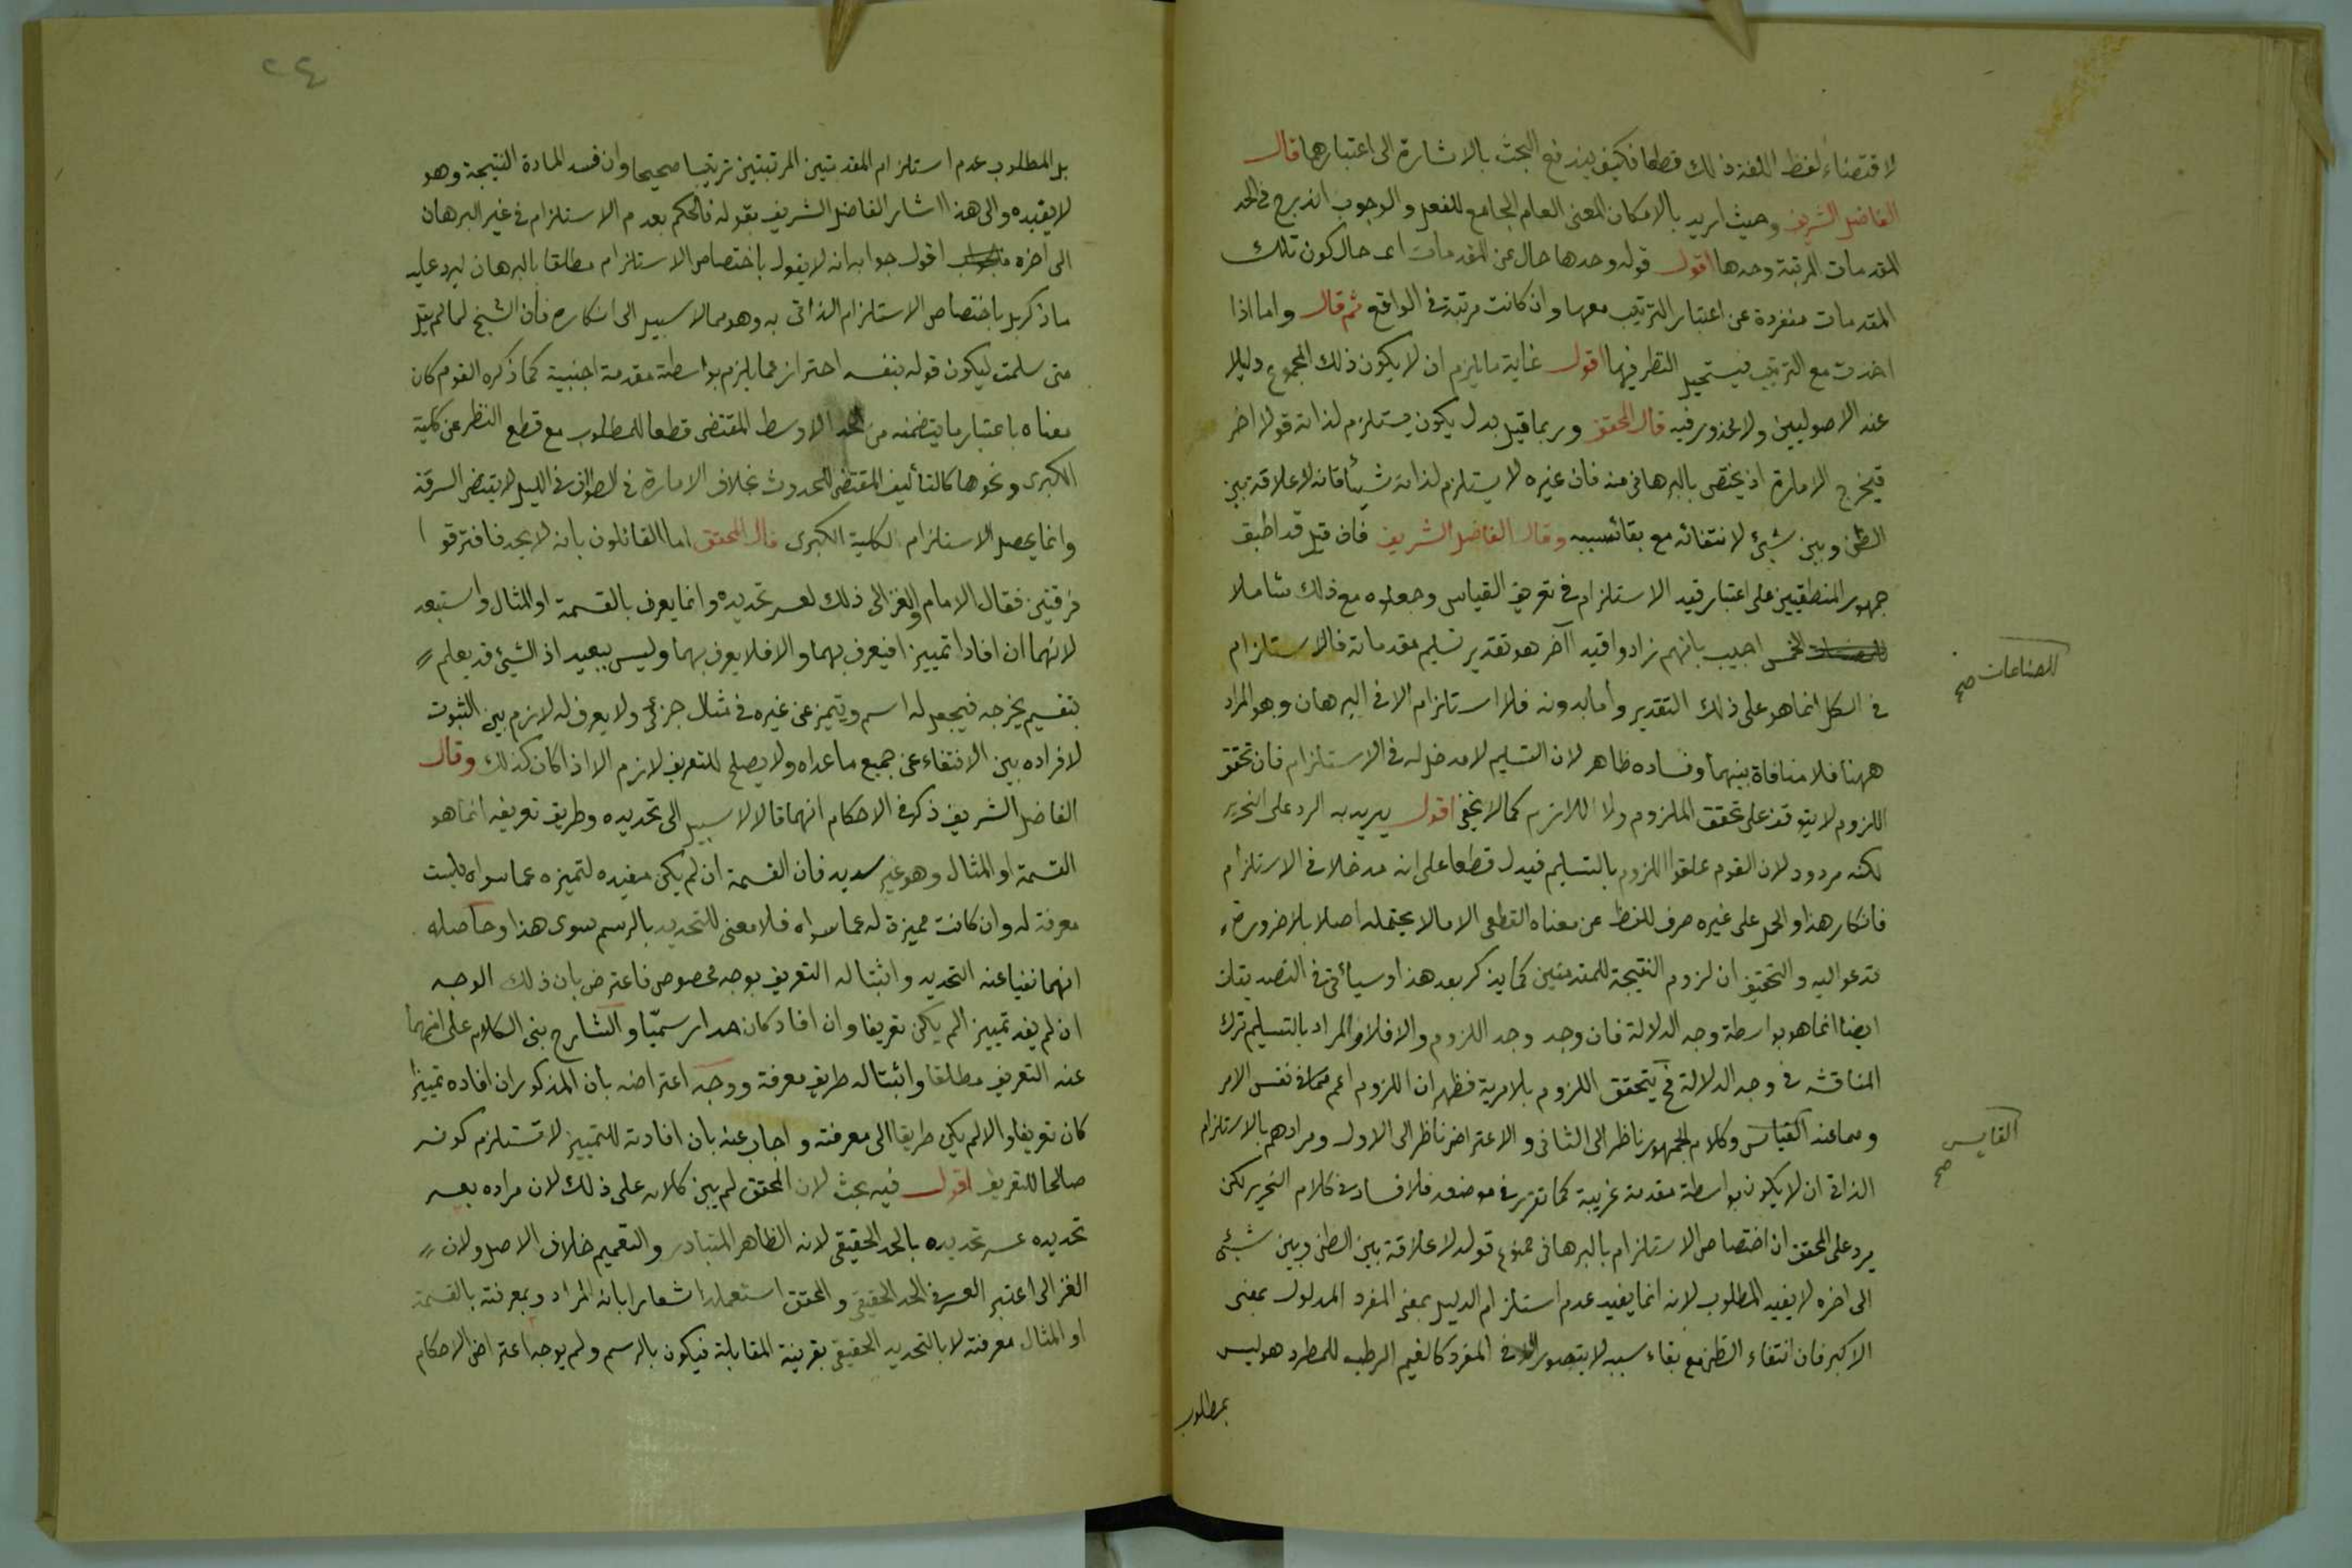 لاقتضاء لفظ اللغة ذلك قطعا فكيف يندفع البحث بالاشارة الى اعتبارهما قال
الفاضل الشريف وحيث اريد بالامكان المعنى العام الجامع للفعل والوجوب اندرج في الحد
المقدمات المرتبة وحدها اقول قوله وحدها حال عن المقدمات اى حال كون تلك
المقدمات منفردة عن اعتبار الترتيب معها وان كانت مرتبة في الواقع ثم قال واما اذا
اخذت مع الترتيب فيستحيل النظر فيها اقول غاية ما يلزم ان لا يكون ذلك المجموع دليلا
عند الاصوليين ولا محذور فيه قال المحقق وربما قيل بدل يكون يستلزم لذاته قولا اخر
فيخرج الامارة اذ يختص بالبرهانى منه فان غيره لا يستلزم لذاته شيئا فانه لا علاقة بين
الظن وبين شيئ لانتفائه مع بقاء سببه وقال الفاضل الشريف فان قيل قد اطبق
جمهور المنطقيين على اعتبار قيد الاستلزام في تعريف القياس وجعلوه مع ذلك شاملا
للصناعات صح
الخمس اجيب بانهم زادوا قيد آخر هو تقدير تسليم مقدماته فالاستلزام
في الكل انما هو على ذلك التقدير وأما بدونه فلا استلزام الا في البرهان وهو المراد
ههنا فلا منافاة بينهما وفساده ظاهر لان التسليم لا مدخل له في الاستلزام فان تحقق
اللزوم لا يتوقف على تحقق الملزوم ولا اللازم كما لا يخفى اقول يريد به الرد على النحرير
لكنه مردود لان القوم علقوا اللزوم بالتسليم فيدل قطعا على ان له مدخلا في الاستلزام
فانكار هذا والحمل على غيره صرف للفظ عن معناه القطعى الا ما لا يحتمله اصلا بلا ضرورة
تدعو اليه والتحقيق ان لزوم النتيجة للمقدمتين كما يذكر بعد هذا وسيأتى في التصديقات
ايضا انما هو بواسطة وجه الدلالة فان وجد وجد اللزوم والا فلا والمراد بالتسليم ترك
المناقشة في وجه الدلالة فح يتحقق اللزوم بلا مرية فظهر ان اللزوم اعم مما في نفس الامر
ومما عند القياس وكلام الجمهور ناظر الى الثانى والاعتراض ناظر الى الاول ومرادهم بالاستلزام
القايس صح
الذاتى ان لا يكون بواسطة مقدمة غريبة كما تقرر في موضعه فلا فساد في كلام النحرير لكن
يرد على المحقق ان اختصاص الاستلزام بالبرهانى ممنوع قوله لا علاقة بين الظن وبين شيئ
الى اخره لا يفيد المطلوب لانه انما يفيد عدم استلزام الدليل بمعنى المفرد المدلول بمعنى
الاكبر فان انتفاء الظن مع بقاء سببه لا يتصور الا في المفرد كالغيم الرطب للمطر وهو ليس
بمطلوب
٢٤
بل المطلوب عدم استلزام المقدمتين المرتبتين ترتيبا صحيحا وان فسد المادة النتيجة وهو
لا يفيده والى هذا اشار الفاضل الشريف بقوله فالحكم بعدم الاستلزام في غير البرهان
الى اخره اقول جوابه انه لا يقول باختصاص الاستلزام مطلقا بالبرهان ليرد عليه
ما ذكر بل باختصاص الاستلزام الذاتى به وهو مما لا سبيل الى انكاره فان الشيخ لما لم يقل
متى سلمت ليكون قوله بنفسه احتراز عما يلزم بواسطة مقدمة اجنبية كما ذكره القوم كان
معناه باعتبار ما يتضمنه من الحد الاوسط المقتضى قطعا للمطلوب مع قطع النظر عن كلية
الكبرى ونحوها كالتأليف المقتضى للحدوث بخلاف الامارة في الطواف في الليل لا يقتضى السرقة
وانما يحصل الاستلزام لكلية الكبرى قال المحقق اما القائلون بانه لا يحد فافترقوا
فرقتين فقال الامام والغزالى ذلك لعسر تحديده وانما يعرف بالقسمة او المثال واستبعد
لانهما ان افادا تمييزا فيعرف بهما والا فلا يعرف بهما وليس ببعيد اذ الشيئ قد يعلم
بتقسيم يخرجه فيجعل له اسم ويتميز عن غيره في مثال جزئى ولا يعرف له لازم بين الثبوت
لافراده بين الانتفاء عن جميع ما عداه ولا يصلح للتعريف لازم الا اذا كان كذلك وقال
الفاضل الشريف ذكر في الاحكام انهما قالا لا سبيل الى تحديده وطريق تعريفه انما هو
القسمة او المثال وهو غير سديد فان القسمة ان لم يكن مفيده لتميزه عما سواه فليست
معرفة له وان كانت مميزة له عما سواه فلا معنى للتحديد بالرسم سوى هذا وحاصله
انهما نفيا عنه التحديد واثبتا له التعريف بوجه مخصوص فاعترض بان ذلك الوجه
ان لم يفد تمييزا لم يكن تعريفا وان افاد كان حدا رسميّا والشارح بنى الكلام على انهما نفيا
عنه التعريف مطلقا واثبتا له طريق معرفة ووجه اعتراضه بان المذكور ان افاده تمييزا
كان تعريفا والا لم يكن طريقا الى معرفته واجاب عنه بان افادته للتمييز لا تستلزم كونه
صالحا للتعريف اقول فيه بحث لان المحقق لم يبن كلامه على ذلك لان مراده بعسر
تحديده عسر تحديده بالحد الحقيقى لانه الظاهر المتبادر والتعميم خلاف الاصل ولان
الغزالى اعتبر العسر في الحد الحقيقى والمحقق استعمله اشعارا بانه المراد وبمعرفته بالقسمة
او المثال معرفته لا بالتحديد الحقيقى بقرينة المقابلة فيكون بالرسم ولم يوجه اعتراض الاحكام